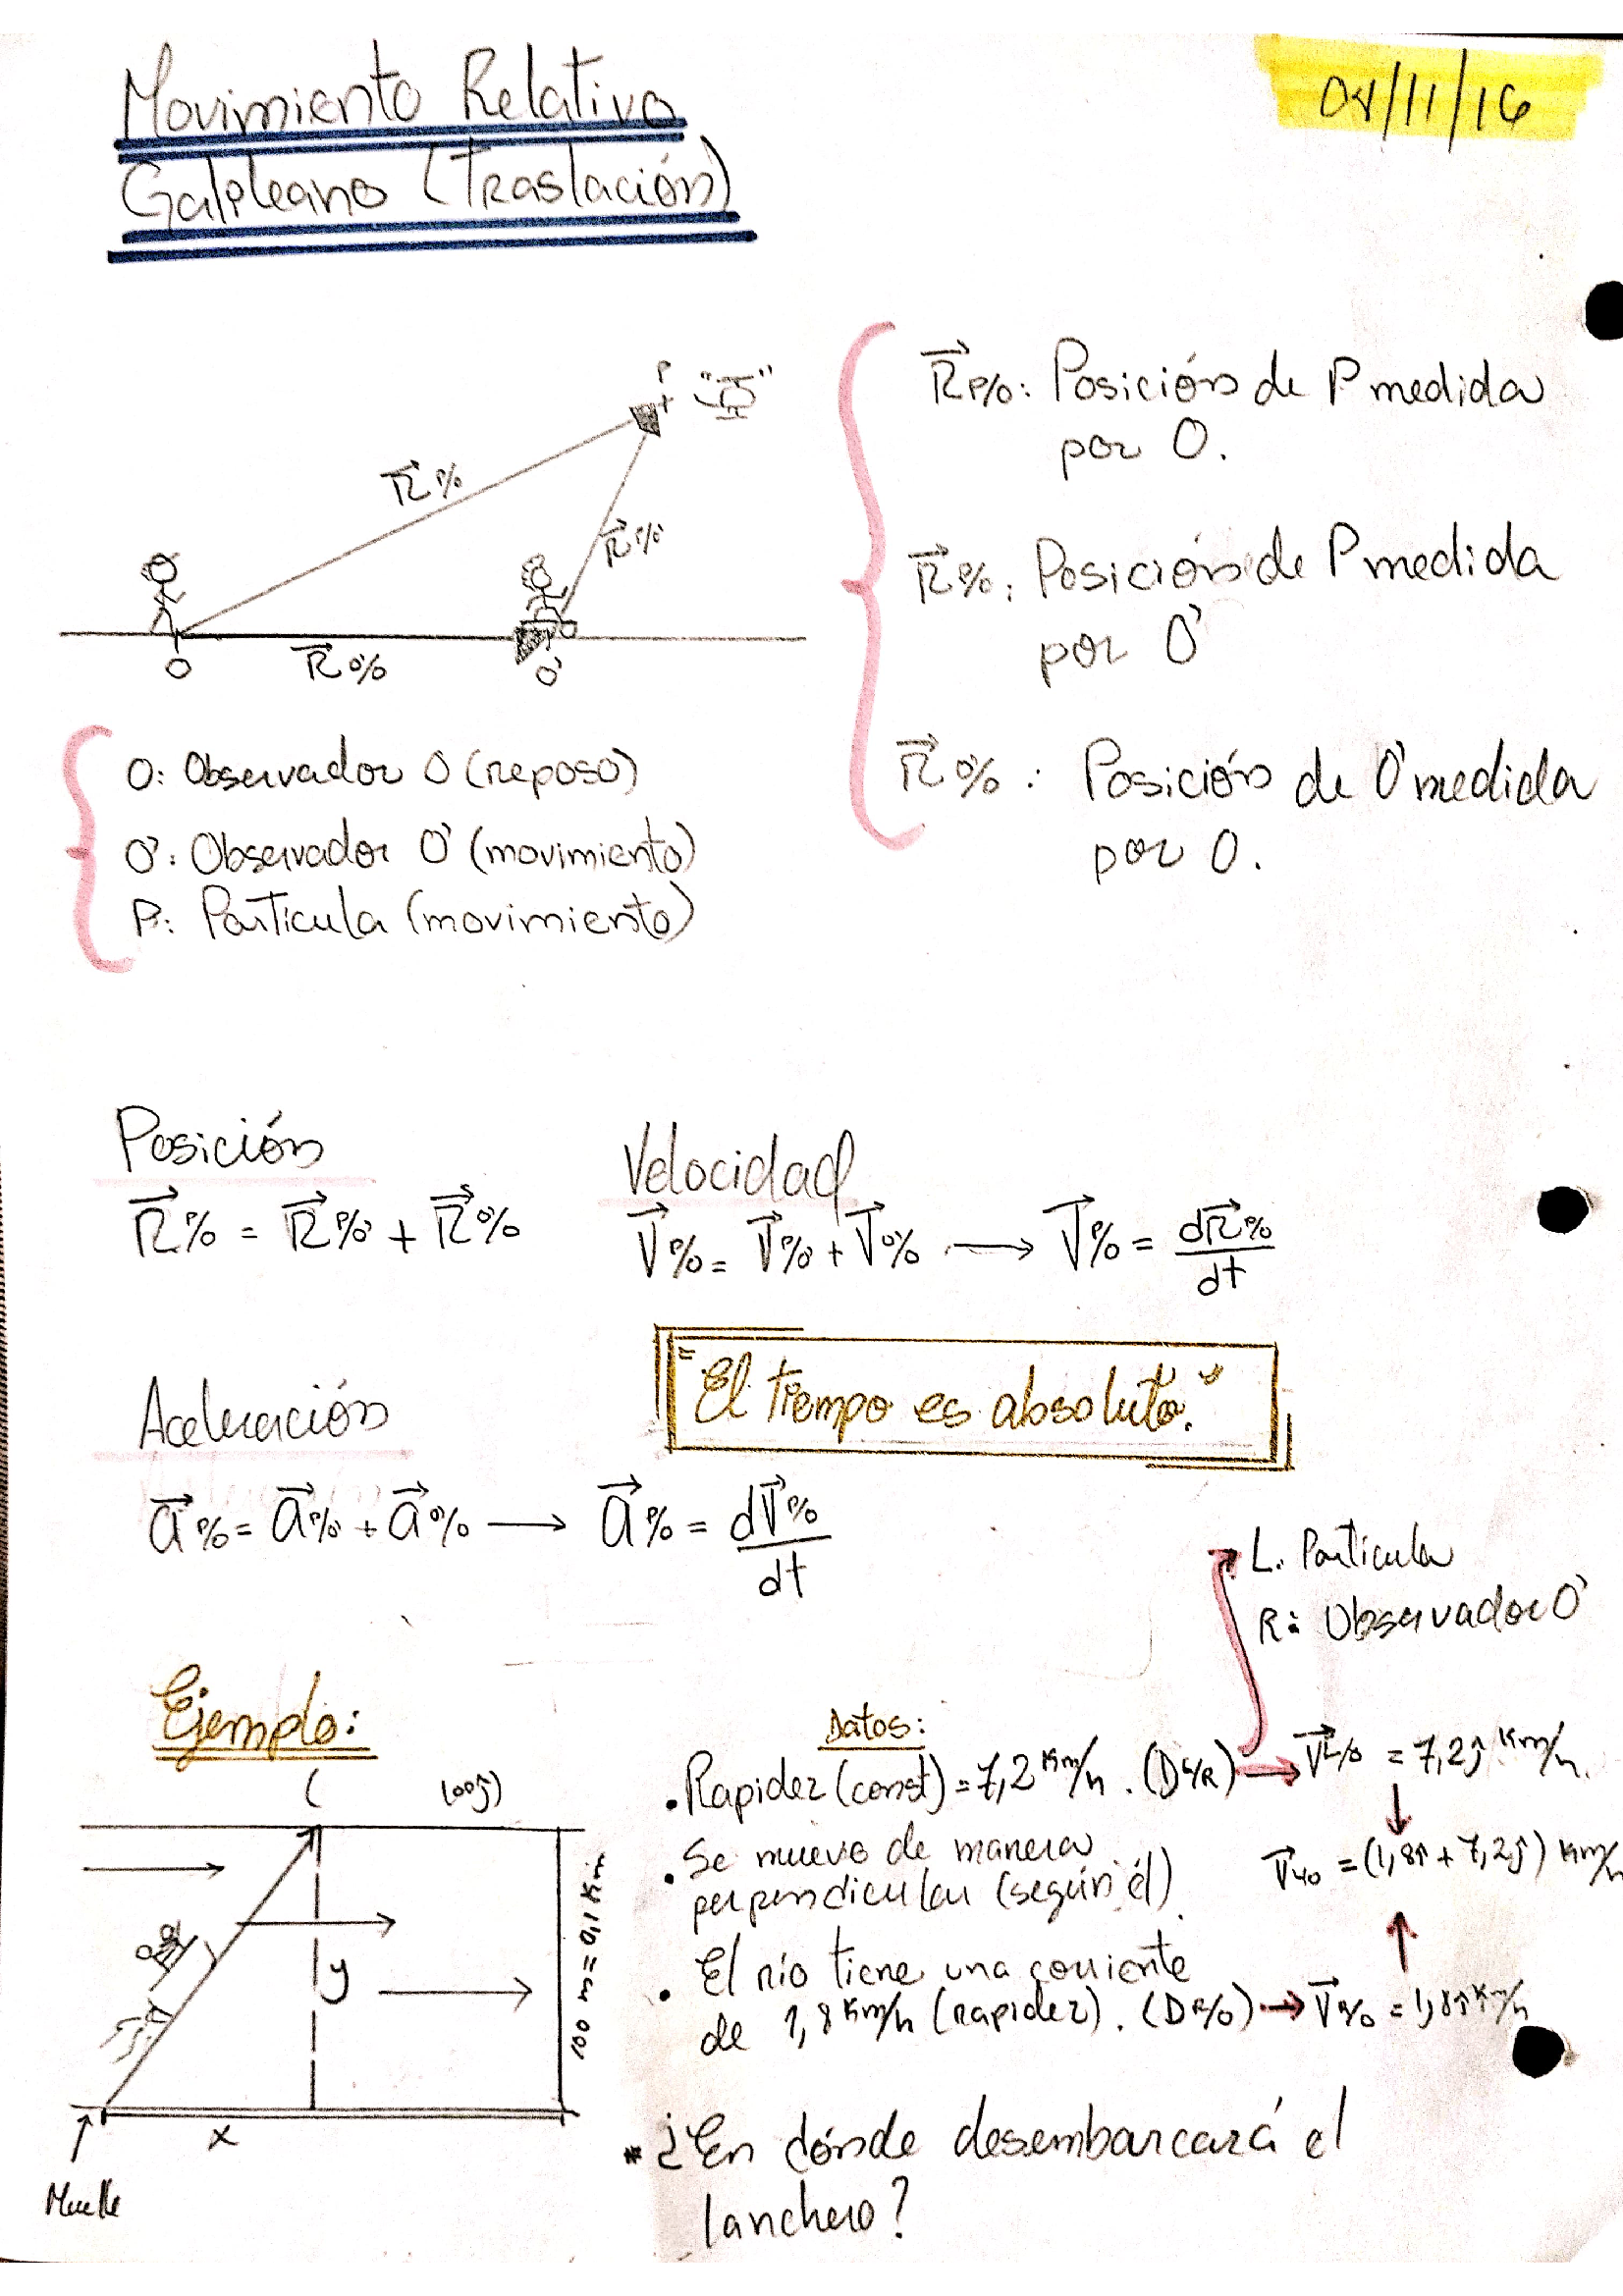 Movimiento Relativo
Galileano (Traslación)
08/11/16
P
R⃗ P/O
R⃗ P/O'
O
R⃗ O'/O
O'
R⃗ P/O: Posición de P medida
por O.
R⃗ P/O': Posición de P medida
por O'
R⃗ O'/O : Posición de O' medida
por O.
O: Observador O (reposo)
O': Observador O' (movimiento)
P: Partícula (movimiento)
Posición
R⃗ P/O = R⃗ P/O' + R⃗ O'/O
Velocidad
V⃗ P/O = V⃗ P/O' + V⃗ O'/O → V⃗ P/O = dR⃗ P/O / dt
"El tiempo es absoluto."
Aceleración
a⃗ P/O = a⃗ P/O' + a⃗ O'/O → a⃗ P/O = dV⃗ P/O / dt
L: Partícula
R: Observador O'
Ejemplo:
y
100 m = 0,1 Km
x
Muelle
Datos:
• Rapidez (const) = 7,2 Km/h. (D L/R) → V⃗ L/O = 7,2ĵ Km/h.
• Se mueve de manera
perpendicular (según él).
V⃗ L/O = (1,8î + 7,2ĵ) Km/h
• El río tiene una corriente
de 1,8 Km/h (rapidez). (D R/O) → V⃗ R/O = 1,8î Km/h
* ¿En dónde desembarcará el
lanchero?